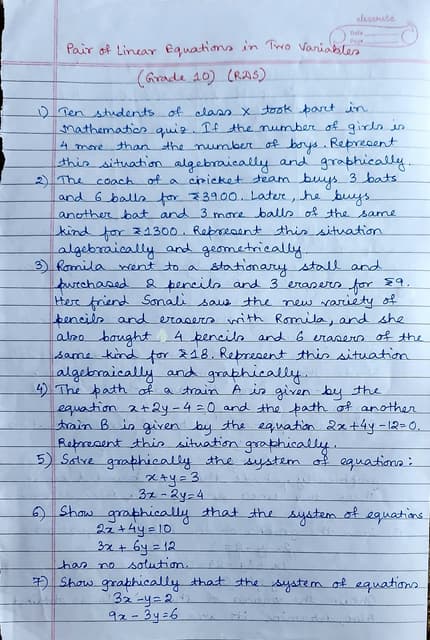 classmate
Date
Page
Pair of Linear Equations in Two Variables
(Grade 10) (RDS)
1) Ten students of class X took part in
Mathematics quiz. If the number of girls is
4 more than the number of boys. Represent
this situation algebraically and graphically.
2) The coach of a cricket team buys 3 bats
and 6 balls for ₹3900. Later, he buys
another bat and 3 more balls of the same
kind for ₹1300. Represent this situation
algebraically and geometrically.
3) Romila went to a stationary stall and
purchased 2 pencils and 3 erasers for ₹9.
Her friend Sonali saw the new variety of
pencils and erasers with Romila, and she
also bought 4 pencils and 6 erasers of the
same kind for ₹18. Represent this situation
algebraically and graphically.
4) The path of a train A is given by the
equation x+2y-4=0 and the path of another
train B is given by the equation 2x+4y-12=0.
Represent this situation graphically.
5) Solve graphically the system of equations:
x+y=3
3x-2y=4
6) Show graphically that the system of equations
2x+4y=10
3x+6y=12
has no solution.
7) Show graphically that the system of equations
3x-y=2
9x-3y=6